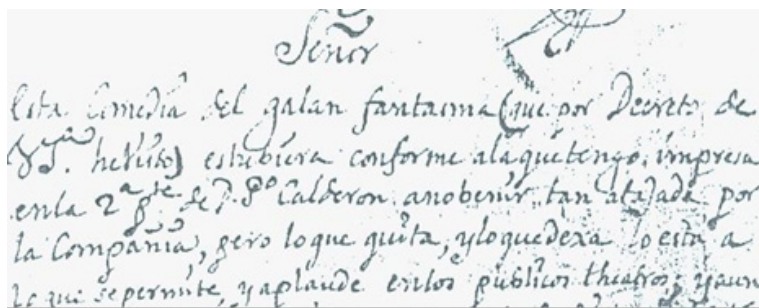 Señor
Esta Comedia del galan fantasma (que por Decreto de
V.S.ª he visto) estubiera conforme alaquetengo impresa
enla 2ª pte de D. Pº Calderon, anobenir tan atajada por
la Compañia, pero loque quita, yloquedexa loestá a
lo que sepermite, yaplaude enlos publicos theatros, yaun